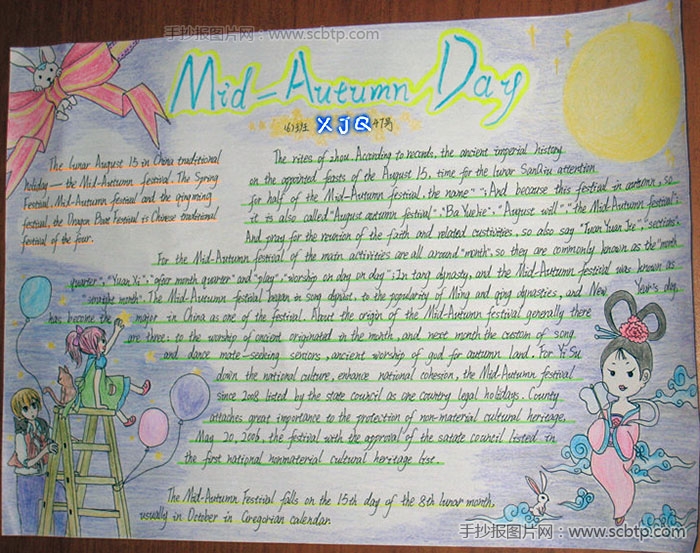 手抄报图片网:www.scbtp.com
Mid-Autumn Day
XJQ
The lunar August 15 in China traditional
holiday — the Mid-Autumn festival. The Spring
Festival, Mid-Autumn festival and the qingming
festival, the Dragon Boat Festival is Chinese traditional
festival of the four.
The rites of zhou. According to records, the ancient imperial history
on the appointed feasts of the August 15, time for the lunar SanQiu attention
for half of the Mid-Autumn festival, the name" "; And because this festival in autumn, so
it is also called "August autumn festival", "Ba Yuejie", "August will" "the Mid-Autumn festival";
And pray for the reunion of the faith and related custivities, so also say "Tuan Yuan Jie", "section".
For the Mid-Autumn festival of the main activities are all around "month", so they are commonly known as the "month
quarter", "Yuan Yi"; "after month quarter" and "play", "worship on day on day"; In tang dynasty, and the Mid-Autumn festival was known as
"straight month". The Mid-Autumn festival began in song dynast, to the popularity of Ming and qing dynasties, and New Year's day,
has become the major in China as one of the festival. About the origin of the Mid-Autumn festival generally there
are three: to the worship of ancient originated in the month, and next month the custom of song
and dance mate-seeking seniors, ancient worship of god for autumn land. For Yi Su
down the national culture, enhance national cohesion, the Mid-Autumn festival
since 2008 listed by the state council as one country legal holidays. County
attaches great importance to the protection of non-material cultural heritage,
May 20, 2006, the festival with the approval of the satate council listed in
the first national nonmaterial cultural heritage list.
The Mid-Autumn Festival falls on the 15th day of the 8th lunar month,
usually in October in Gregorian calendar.
手抄报图片网:www.scbtp.com